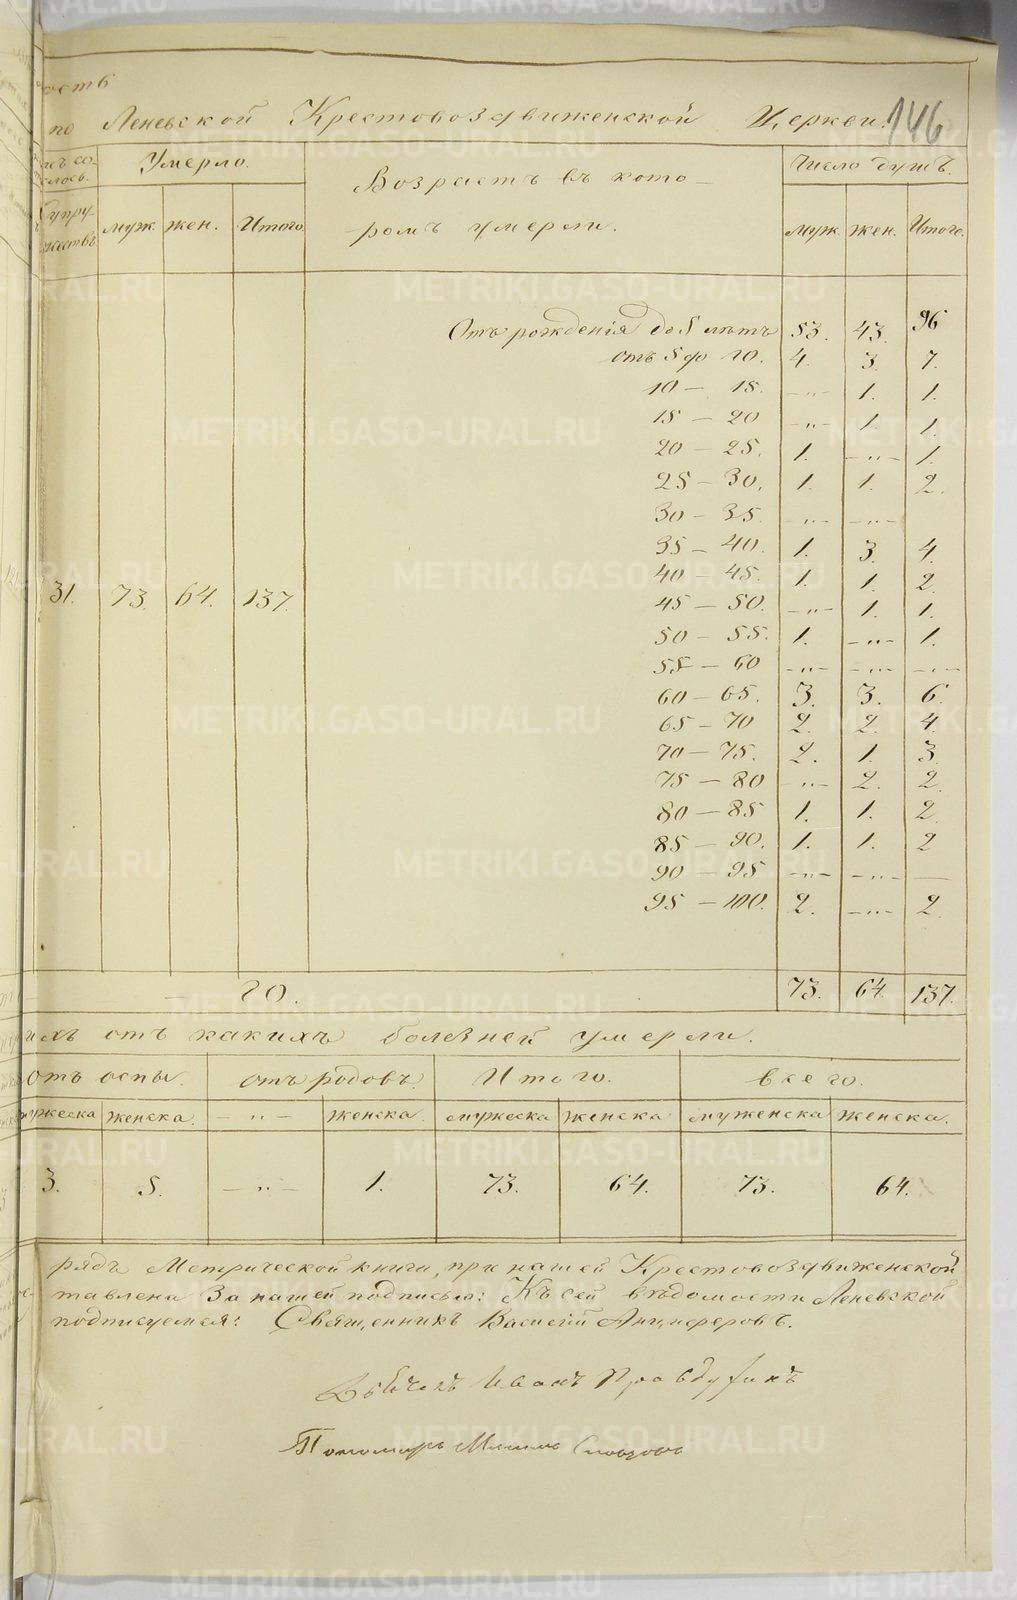 ость
по Леневской Крестовоздвиженской Церкви. 146
Умерло. Возрастъ въ кото- Число душъ.
супру-
жествъ муж. жен. Итого. ромъ умерли. Муж. Жен. Итого.
Отъ рожденія до 5 лѣтъ 53. 43. 96
отъ 5 до 10. 4. 3. 7.
10 — 15. -"- 1. 1.
15 — 20 -"- 1. 1.
20 — 25. 1. -"- 1.
25 — 30. 1. 1. 2.
30 — 35. -"- -"-
35 — 40. 1. 3. 4.
40 — 45. 1. 1. 2.
31. 73. 64. 137.
45 — 50. -"- 1. 1.
50 — 55. 1. -"- 1.
55 — 60 -"- -"- -"-
60 — 65. 3. 3. 6.
65 — 70 2. 2. 4.
70 — 75. 2. 1. 3.
75 — 80 -"- 2. 2.
80 — 85 1. 1. 2.
85 — 90. 1. 1. 2
90 — 95 -"- -"- —
95 — 100. 2. -"- 2.
го. 73. 64. 137.
ихъ отъ какихъ болезней умерли.
отъ оспы. отъ родовъ. Итого. всего.
мужеска женска. -"- женска. мужеска женска муженска женска.
3. 5. -"- 1. 73. 64. 73. 64.
рядъ Метрической книги, при нашей Крестовоздвиженской
тавлена За нашей подписью: Къ сей вѣдомости Леневской
подписуемся: Священникъ Василій Анциферовъ.
Дьячекъ Иванъ
Пономарь
METRIKI.GASO-URAL.RU